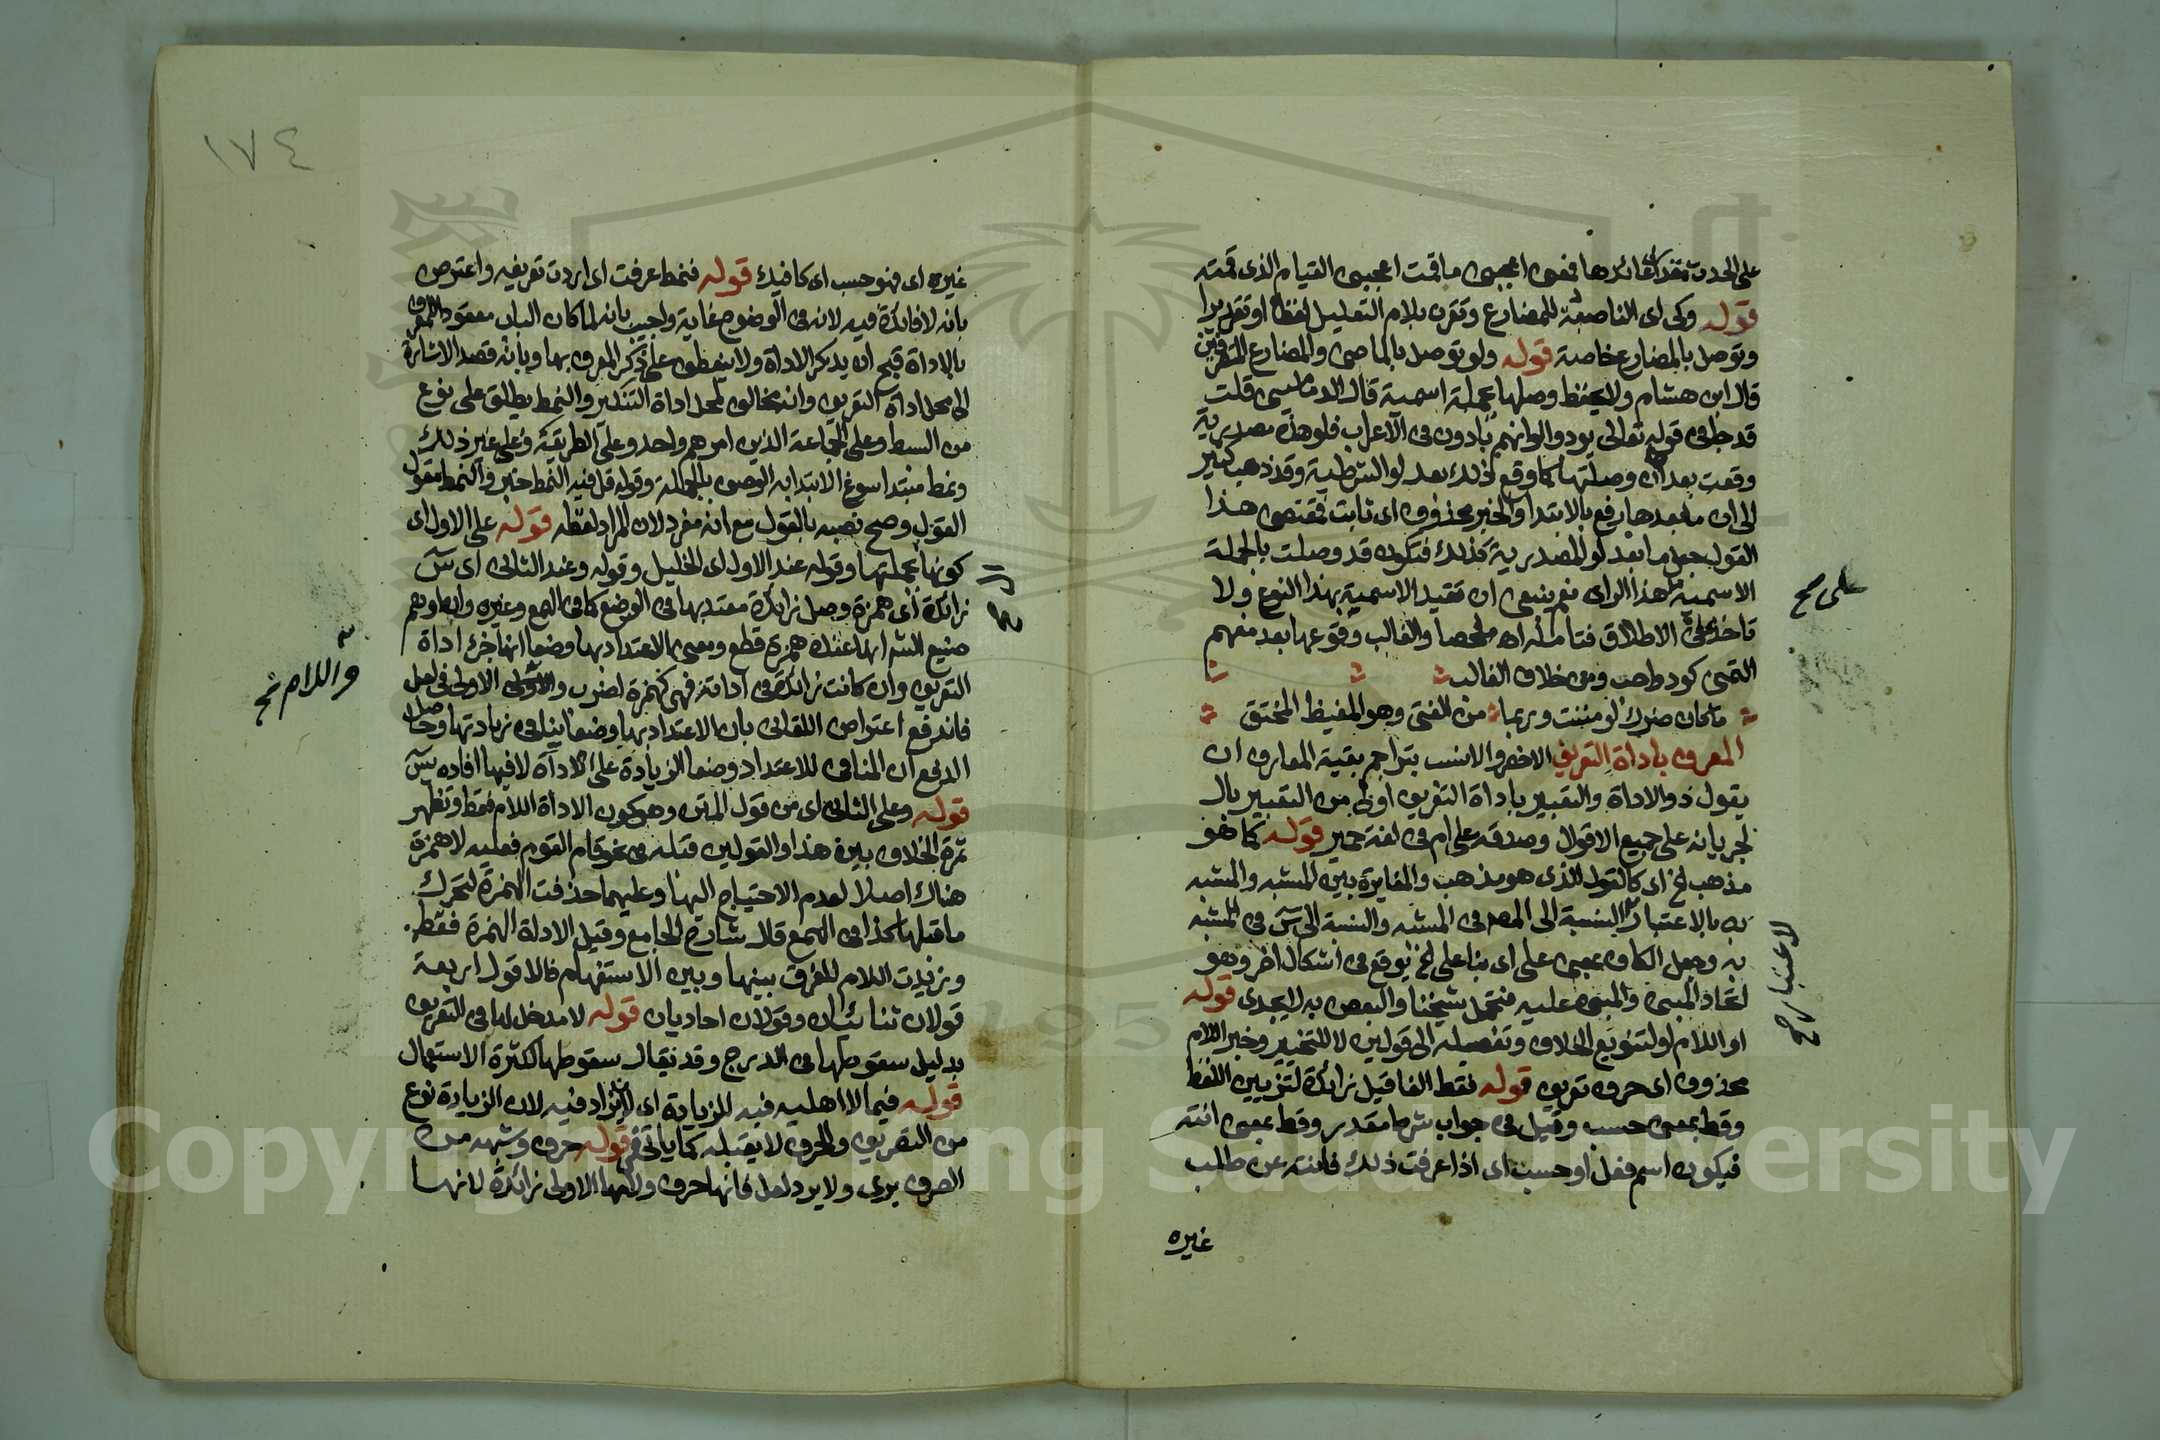 على الحدث بتقدير عائدها فمعنى اعجبنى ما قمت اعجبنى القيام الذى قمته
قوله وكى اى الناصبة للمضارع وتقرن بلام التعليل لفظا او تقديرا
وتوصل بالمضارع خاصة قوله ولو توصل بالماضى والمضارع المتصرفين
قال ابن هشام ولا يحفظ وصلها بجملة اسمية قال الدمامينى قلت
قد جا فى قوله تعالى يودوا لو انهم بادون فى الاعراب فلو هذه مصدرية
وقعت بعدها ان وصلتها كما وقع كذلك بعد لو الشرطية وقد ذهب كثير
الى ان ما بعدها رفع بالابتدا والخبر محذوف اى ثابت فمقتضى هذا
القول جعل ما بعد لو المصدرية كذلك فتكون قد وصلت بالجملة
الاسمية على هذا الراى نعم ينبغى ان تقيد الاسمية بهذا النوع ولا
تاخذ على الاطلاق فتامله اه ملخصا والغالب وقوعها بعد مفهم
التمنى كود واحب ومن خلاف الغالب
ما كان ضرك لو مننت وربما من الفتى وهو المغيظ المحنق
المعرف باداة التعريف الاخصر والانسب بتراجم بقية المعارف ان
يقول ذو الاداة والتعبير باداة التعريف اولى من التعبير بال
لجريانه على جميع الاقوال وصدقه على ام فى لغة حمير قوله كما هو
مذهب لخ اى كالقول الذى هو مذهب والمغايرة بين المشبه والمشبه
به بالاعتبار بالنسبة الى المص فى المشبه والنسبة الى س فى المشبه
به وجعل الكاف بمعنى على اى بنا على لخ يوقع فى اشكال اخر وهو
اتحاد المبنى والمبنى عليه فتمحل شيخنا والبعض به لا يجدى قوله
او اللام او لتنويع الخلاف وتفصيله الى قولين لا للتخيير وخبر اللام
محذوف اى حرف تعريف قوله فقط الفا قيل زائدة لتزيين اللفظ
وقط بمعنى حسب وقيل فى جواب شرط مقدر وقط بمعنى انته
فيكون اسم فعل او حسب اى اذا عرفت ذلك فانته عن طلب
غيره
على صح
لاعتبار صح
١٧٤
غيره اى فهو حسب اى كافيك قوله فنمط عرفت اى اردت تعريفه واعترض
بانه لا فائدة فيه لانه فى الوضوح غاية واجيب بانه لما كان الباب معقودا للمعرف
بالاداة قبح ان يذكر الاداة ولا ينعطف على ذكر المعرف بها وبانه قصد الاشارة
الى محل اداة التعريف وانه مخالف لمحل اداة التنكير والنمط يطلق على نوع
من البسط وعلى الجماعة الذين امرهم واحد وعلى الطريقة وعلى غير ذلك
ونمط مبتدا سوغ الابتدا به الوصف بالجملة وقوله قل فيه النمط خبر والنمط مقول
القول وصح نصبه بالقول مع انه مفرد لان المراد لفظه قوله على الاول اى
كونها بجملتها وقوله عند الاول اى الخليل وقوله وعند الثانى اى س
زائدة اى همزة وصل زائدة معتد بها فى الوضع كما فى الهمع وغيره وان اوهم
صنيع الش انها عنده همزة قطع ومعنى الاعتداد بها وضعا انها جزء اداة
التعريف وان كانت زائدة فى اداته فهى كهمزة اضرب واللام الاولى فى لعل
فاندفع اعتراض اللقانى بان الاعتداد بها وضعا ينافى زيادتها وحاصل
الدفع ان المنافى للاعتداد وضعا الزيادة على الاداة لا فيها افاده يس
قوله وعلى الثانى اى من قول المتن وهو كون الاداة اللام فقط وتظهر
ثمرة الخلاف بين هذا والقولين قبله فى نحو قام القوم فعليه لا همزة
هناك اصلا لعدم الاحتياج اليها وعليهما حذفت الهمزة لتحرك
ما قبلها كذا فى الهمع قال شارح الجامع وقيل الاداة الهمزة فقط
وزيدت اللام للفرق بينها وبين الاستفهام فالاقوال اربعة
قولان ثنائيان وقولان احاديان قوله لا مدخل لها فى التعريف
بدليل سقوطها فى الدرج وقد يقال سقوطها لكثرة الاستعمال
قوله فيما لا اهلية فيه للزيادة اى لان يزاد فيه لان الزيادة نوع
من التصريف والحرف لا يقبله كما ياتى فى قوله حرف وشبهه من
الصرف برى ولا يرد لعل فانها حرف ولامها الاولى زائدة لانها
واللام صح